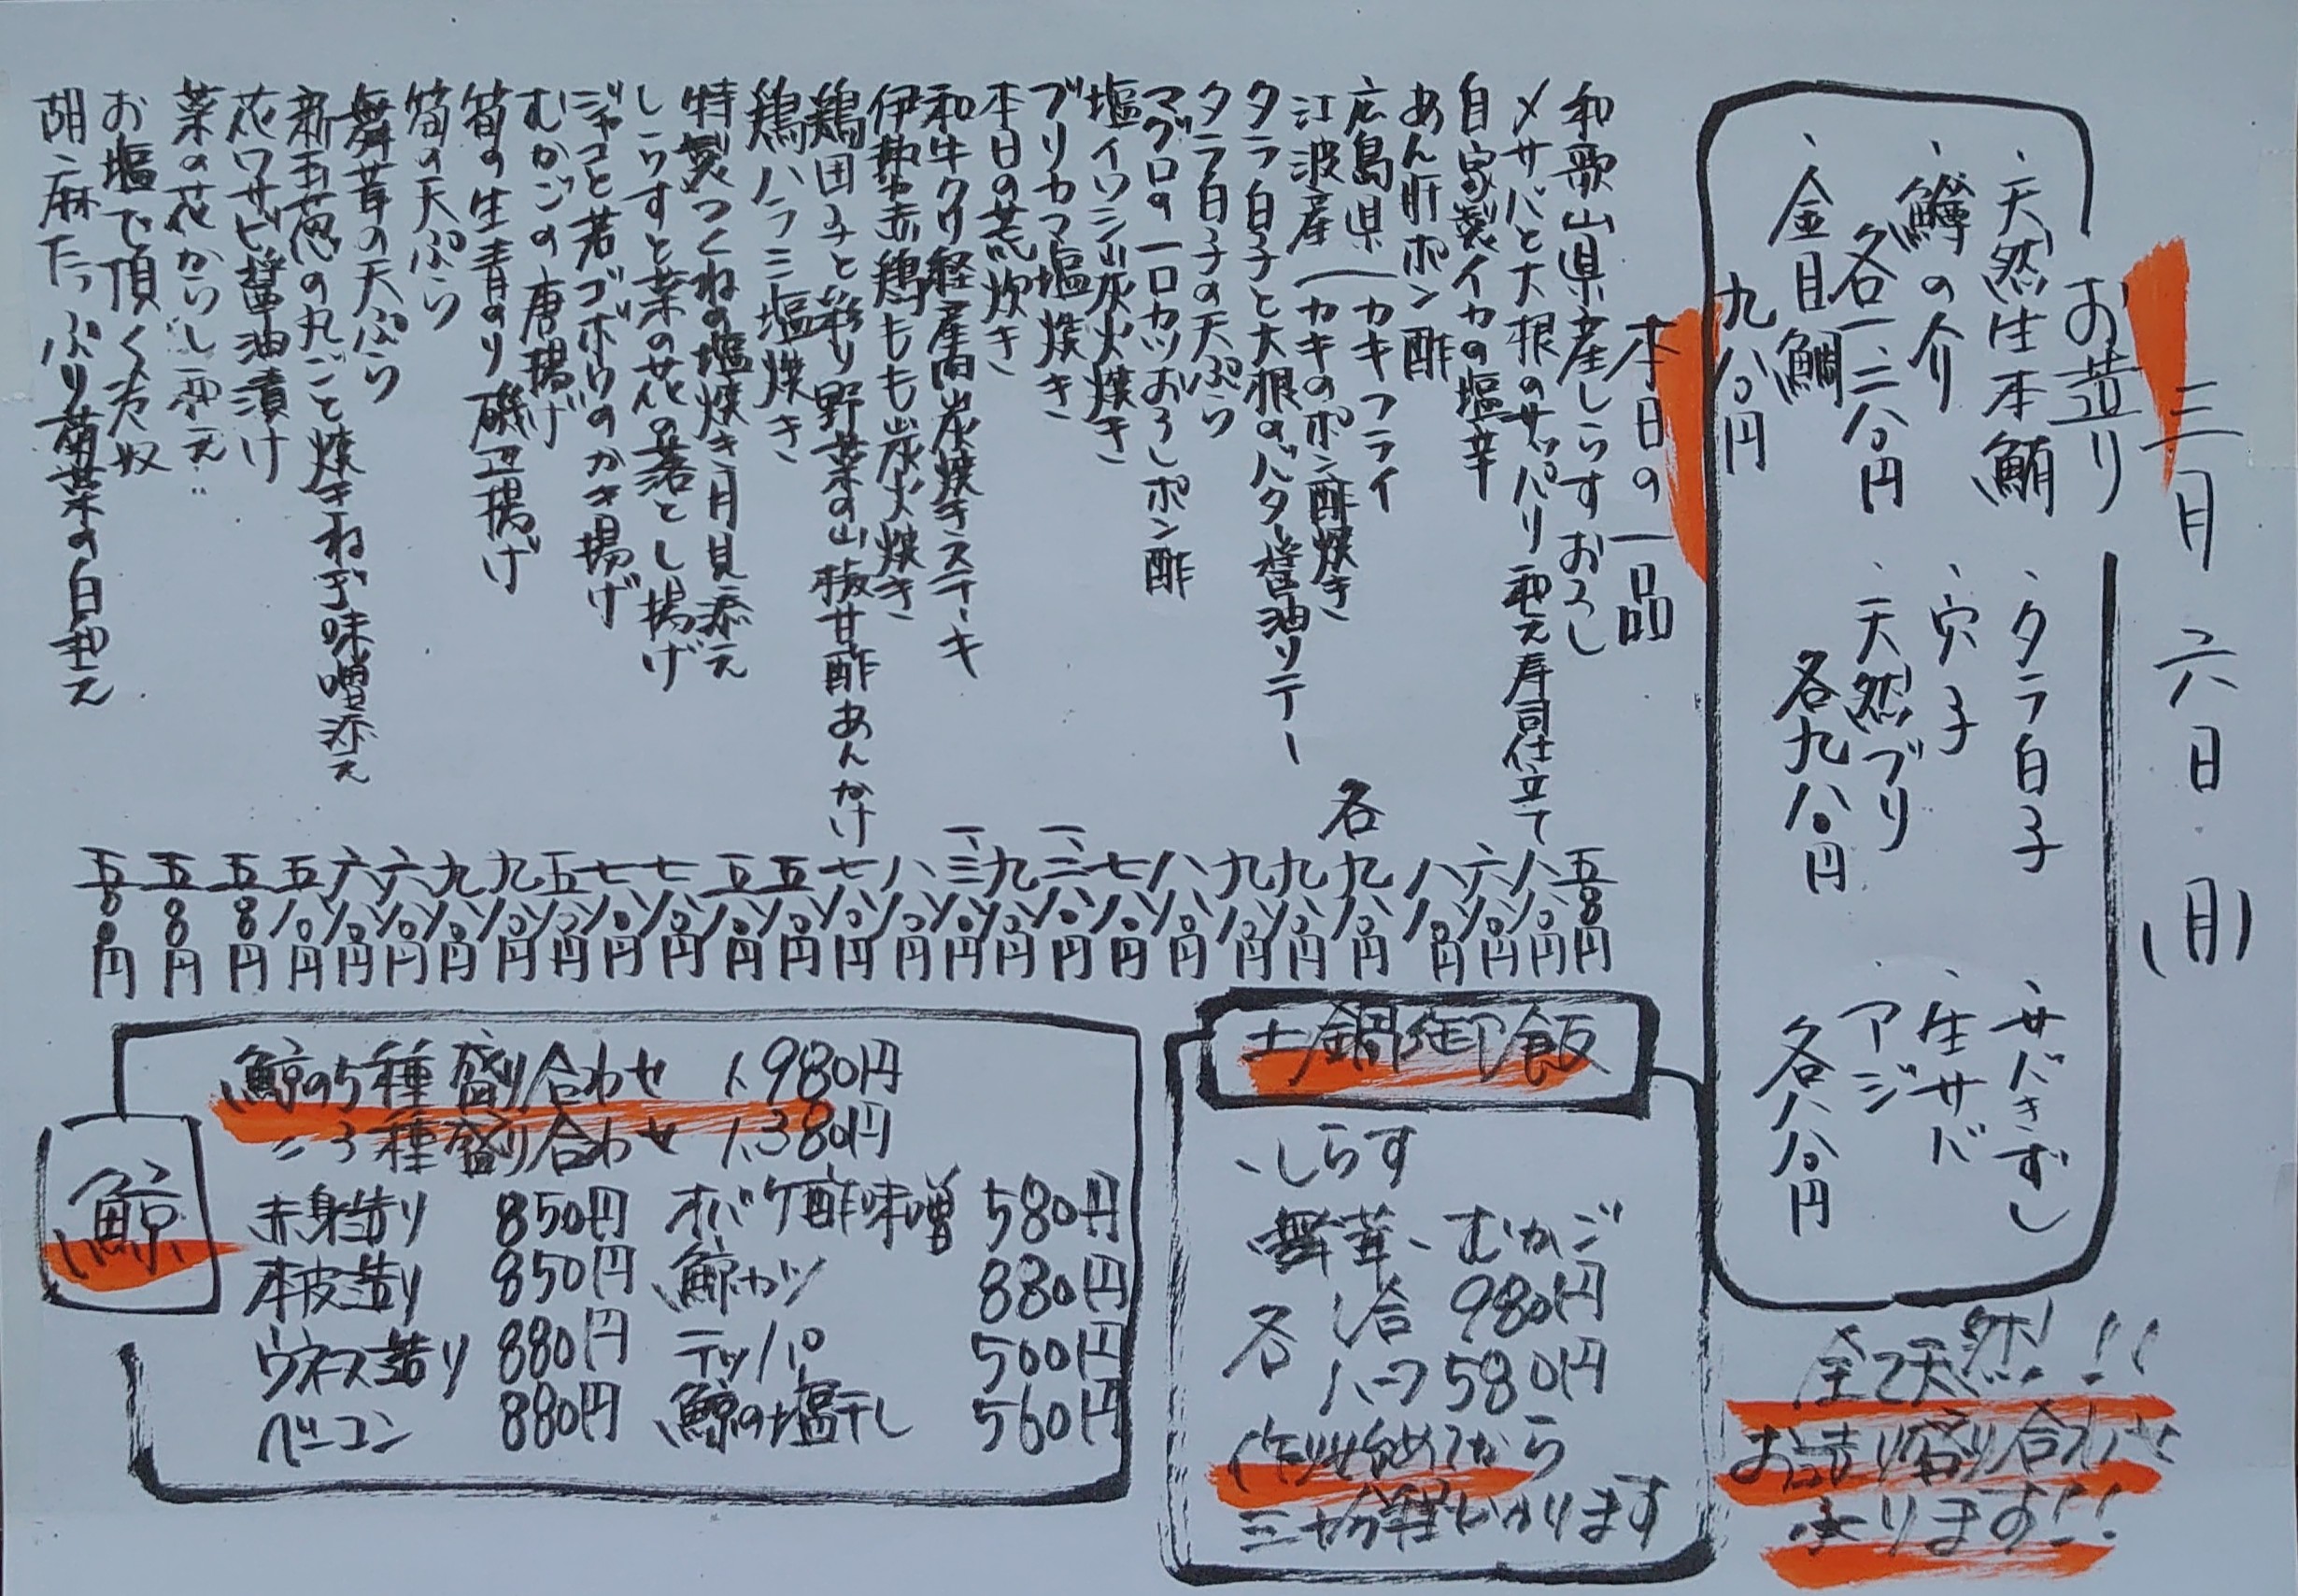 三月六日(月)
お造り
、天然生本鮪
、鱒の介
各一、二八〇円
、金目鯛
九八〇円
、タラ白子
、穴子
、天然ブリ
各九八〇円
、サバきずし
、生サバ
、アジ
各八八〇円
全て天然!!!
お造り盛り合わせ
承ります!!
本日の一品
和歌山県産しらすおろし 五八〇円
〆サバと大根のサッパリ和え寿司仕立て 八八〇円
自家製イカの塩辛 六八〇円
あん肝ポン酢 八八〇円
広島県 江波産 カキフライ
カキのポン酢焼き 各九八〇円
タラ白子と大根のバター醤油ソテー 九八〇円
タラ白子の天ぷら 九八〇円
マグロの一口カツおろしポン酢 八八〇円
塩イワシ炭火焼き 七八〇円
ブリカマ塩焼き 一、二八〇円
本日の荒炊き 九八〇円
和牛クリ経産肉炭焼きステーキ 一、三八〇円
伊勢赤鶏もも炭火焼き 八八〇円
鶏団子と彩り野菜の山椒甘酢あんかけ 七八〇円
鶏ハラミ塩焼き 五八〇円
特製つくねの塩焼き月見添え 五八〇円
しらすと菜の花の落とし揚げ 七八〇円
ジャコと若ゴボウのかき揚げ 七八〇円
むかごの唐揚げ 五八〇円
筍の生青のり磯辺揚げ 九八〇円
筍の天ぷら 九八〇円
舞茸の天ぷら 六八〇円
新玉葱の丸ごと焼きねぎ味噌添え 六八〇円
花ワサビ醤油漬け 五八〇円
菜の花からし和え 五八〇円
お塩で頂く冷奴 五八〇円
胡麻たっぷり菊菜の白和え 五八〇円
土鍋御飯
、しらす
、舞茸、むかご
各 1合 980円
ハーフ 580円
作り始めてから
三十分程かかります
鯨
鯨の5種盛り合わせ 1,980円
〃3種盛り合わせ 1,380円
赤身造り 850円 オバケ酢味噌 580円
本皮造り 850円 鯨カツ 880円
ウネス造り 880円 テッパ 500円
ベーコン 880円 鯨の塩干し 560円